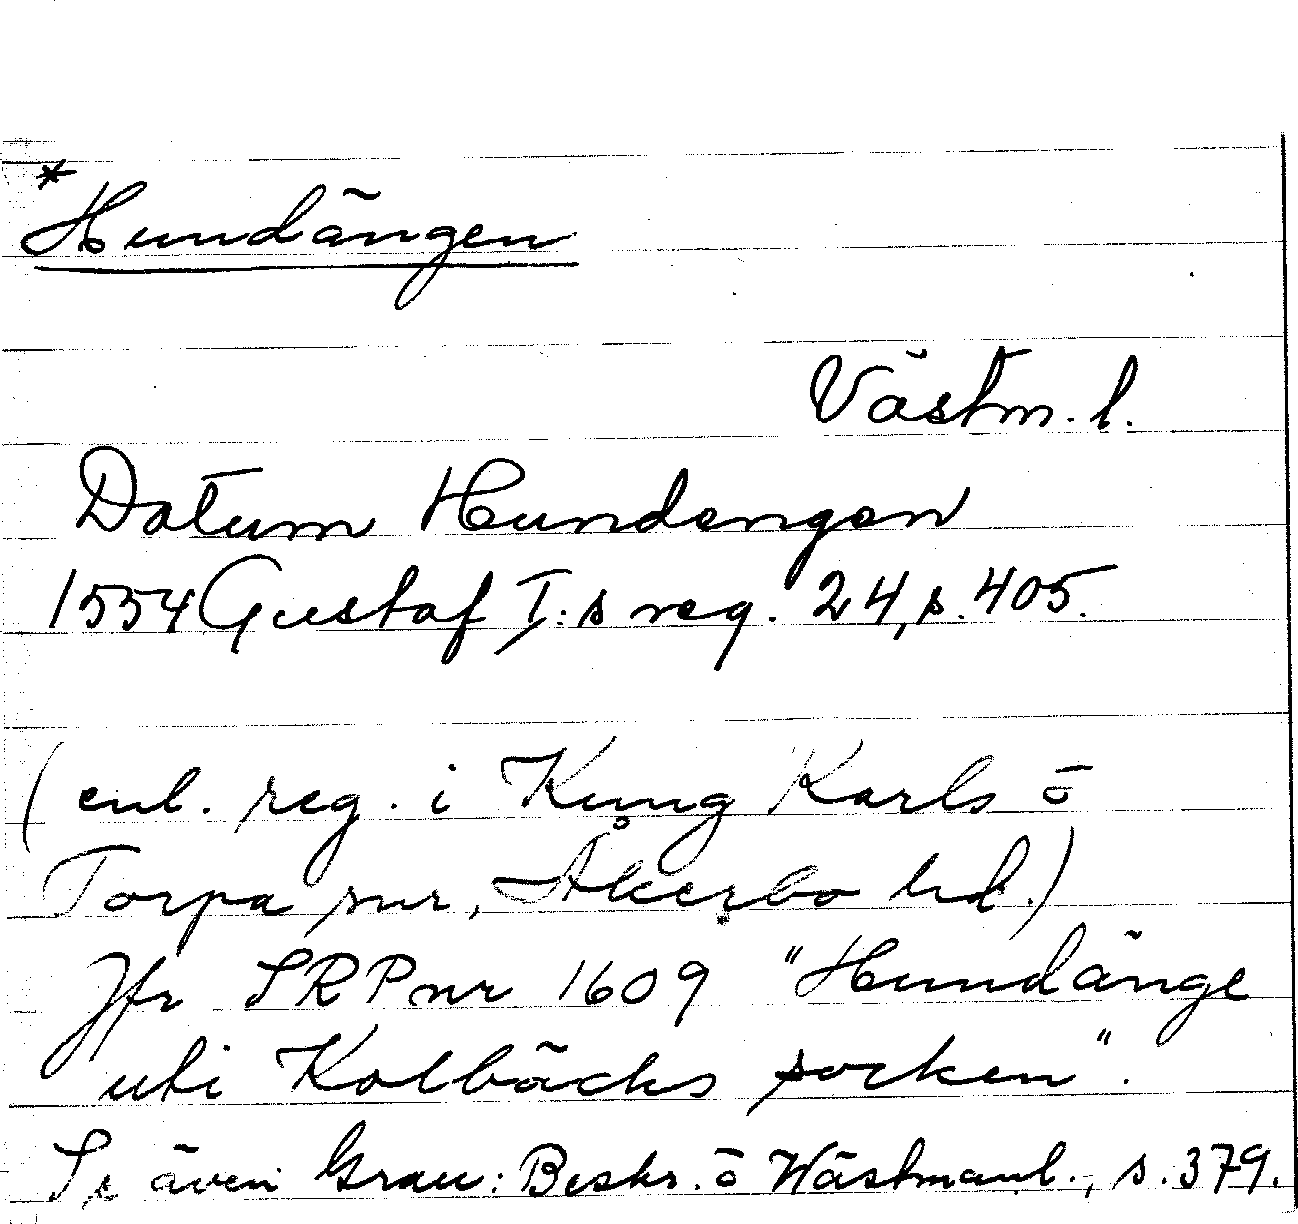 *
Hundängen
Västm. l.
Datum Hundengen
1554 Gustaf I:s reg. 24, s. 405.
(enl. reg. i Kung Karls o
Torpa snr, Åkerbo hd.)
Jfr SRP nr 1609 "Hundänge
uti Kolbäcks socken".
Se även Grau: Beskr. ō Wästmanl., s. 379.